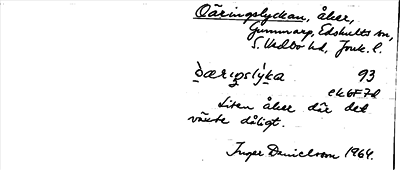 Oäringslyckan, åker,
Gummarp, Edshults sn,
S. Vedbo hd, Jönk. l.
òærigsly̕ka 93
ek6F7d
Liten åker där det
växte dåligt.
Inger Danielsson 1964.